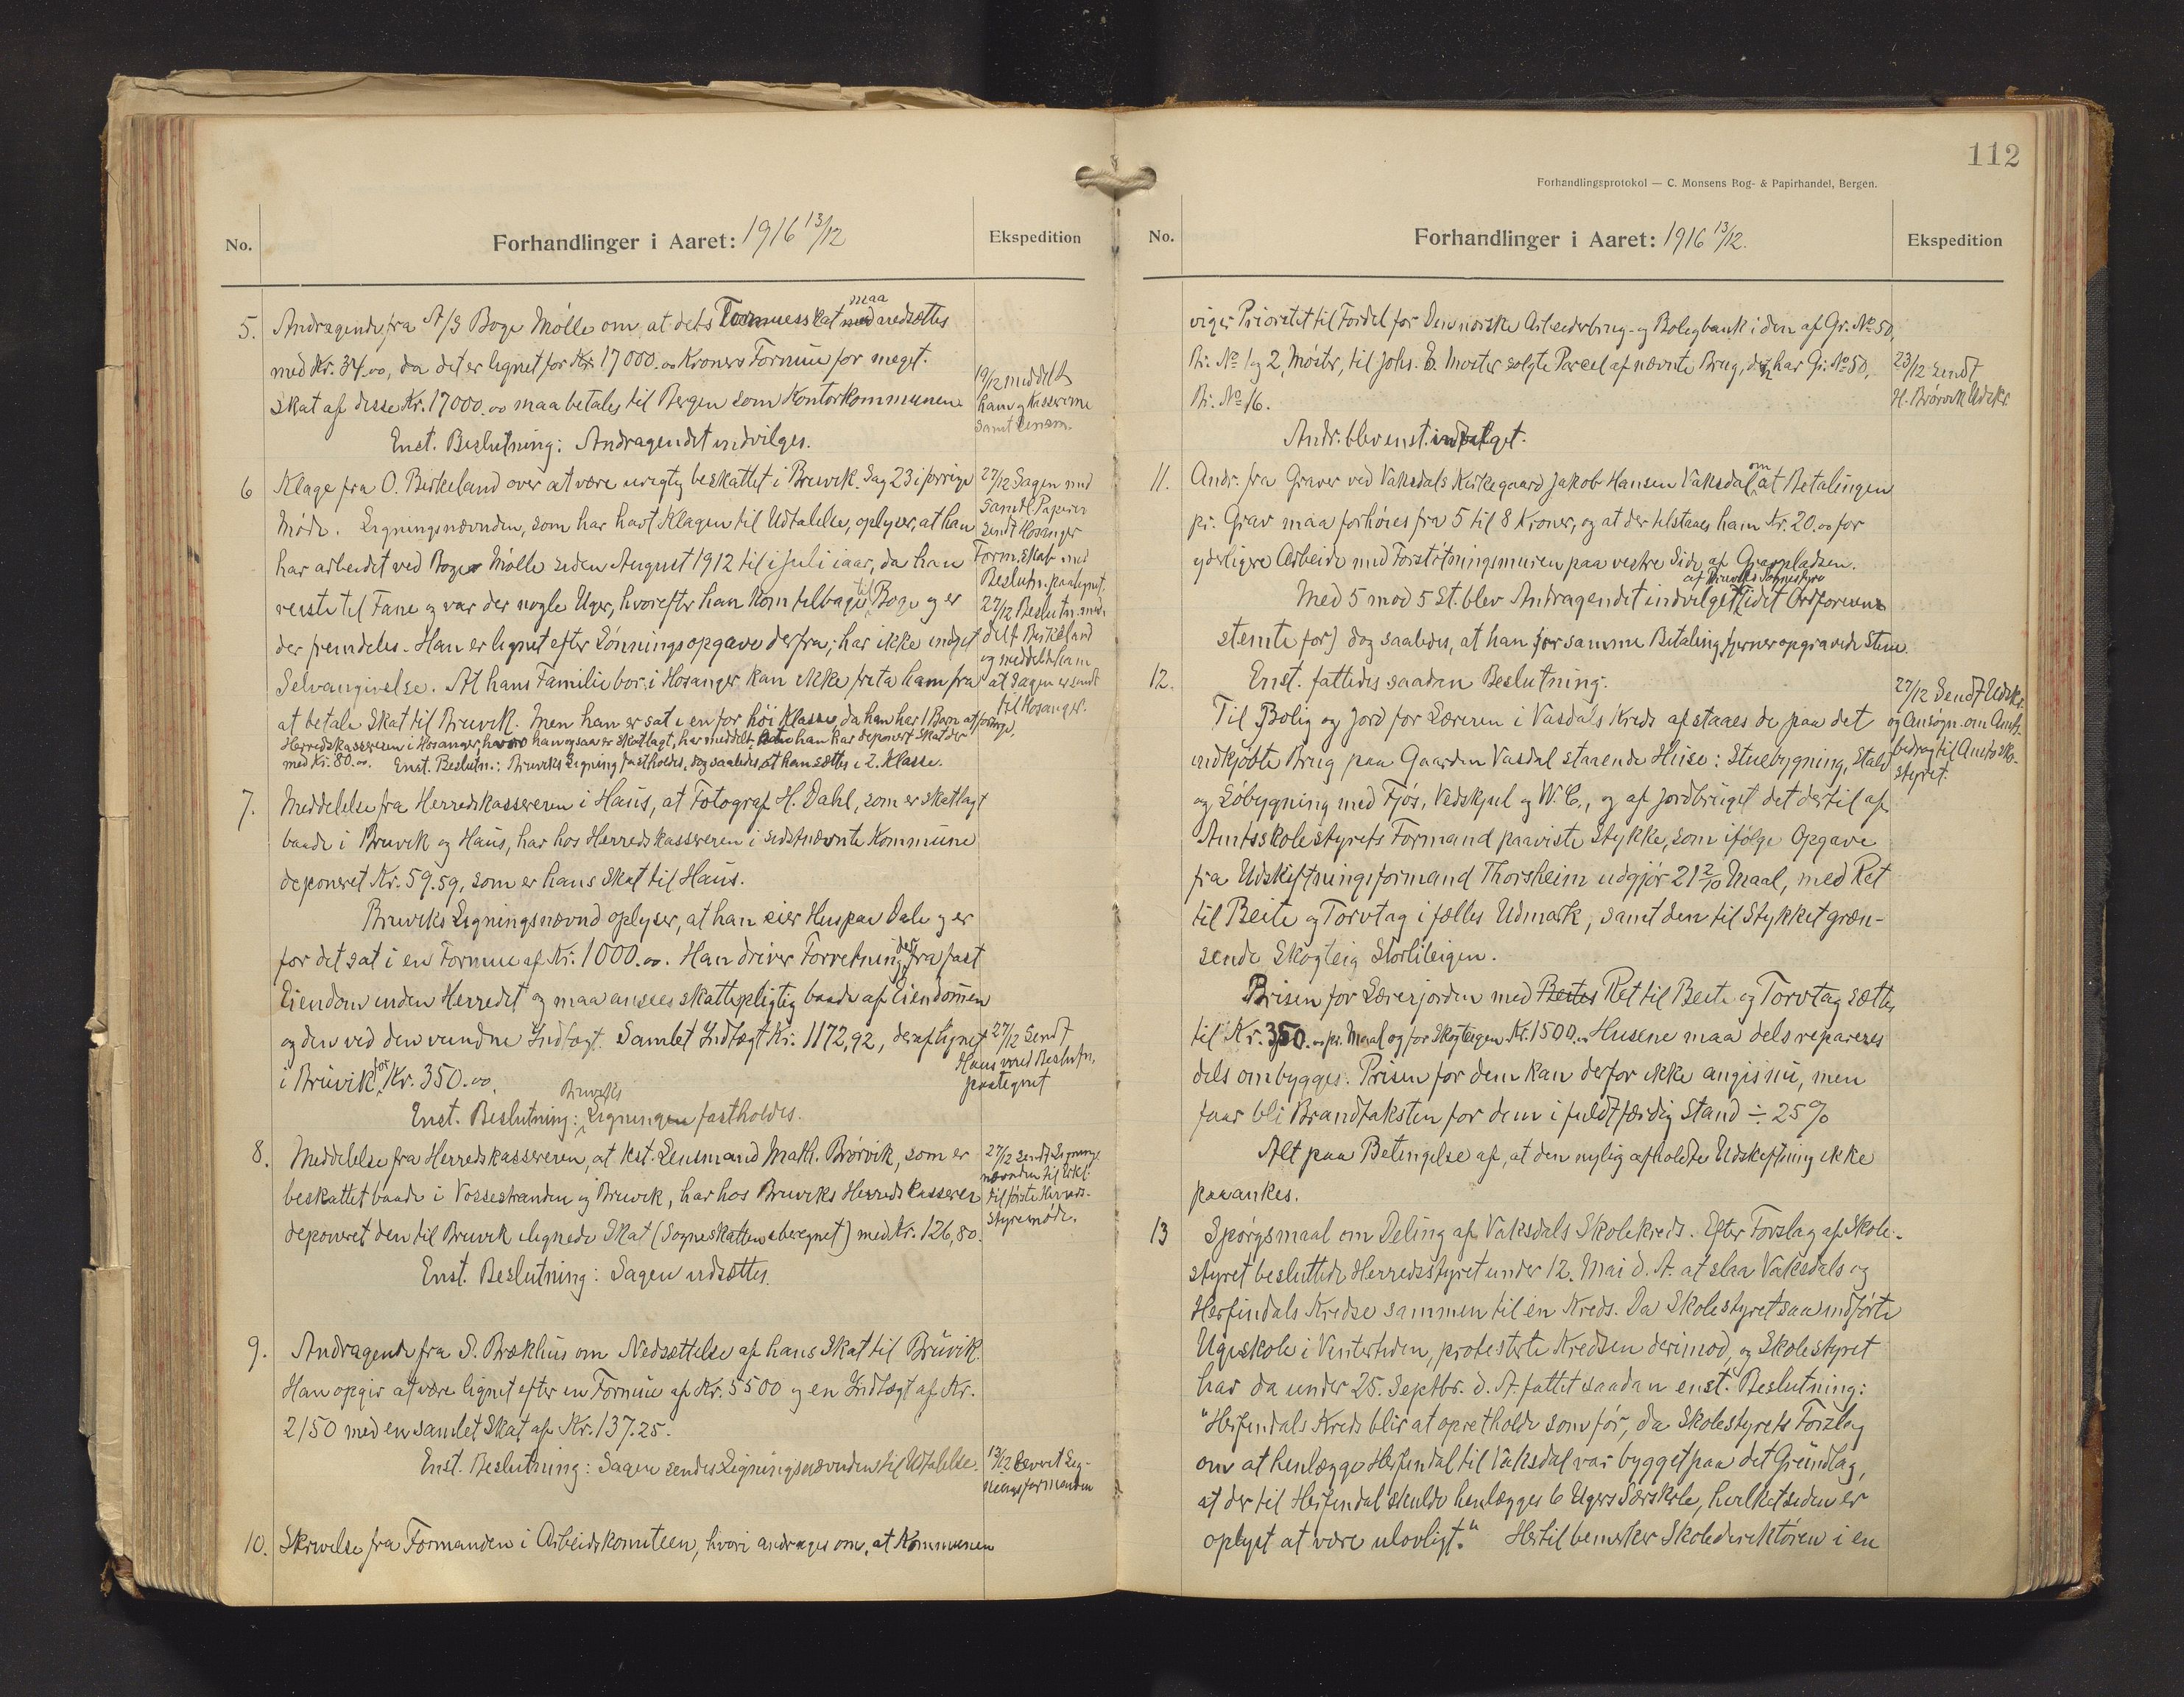 No.
Forhandlinger i Aaret: 1916 13/12
Ekspedition
5. Andragende fra A/S Boge Mølle om, at dets Formuesskat maa nedsættes
med Kr. 34.00, da det er lignet for Kr. 17000.00 Kroners Formue for meget.
Skat af disse Kr. 17000.00 maa betales til Bergen som Kontorkommunen.
Enst. Beslutning: Andragendet indvilges.
19/12 meddelt
ham og Kassererne
samt
6 Klage fra O. Birkeland over at være urigtig beskattet i Bruvik. Sag 23 i forrige
Møde. Ligningsnævnden, som har havt Klagen til Udtalelse, oplyser, at han
har arbeidet ved Boge Mølle siden August 1912 til i Juli iaar, da han
reiste til Fane og var der nogle Uger, hvorefter han kom tilbage til Boge og er
der fremdeles. Han er lignet efter Lønningsopgave derfra; har ikke indgit
Selvangivelse. At hans Familie bor i Hosanger kan ikke frita ham fra
at betale Skat til Bruvik. Men han er sat i en for høi Klasse, da han har 1 Barn at forsørge.
Herredskassereren i Hosanger, hvor han ogsaa er skatlagt, har meddelt, at han har deponert Skat der
med Kr. 80.00. Enst. Beslutn.: Bruviks Ligning fastholdes, dog saaledes, at han sættes i 2. Klasse.
27/12 Sagen med
samtl. Papirer
sendt Hosanger
Form.skab med
Beslutn. paategnet.
27/12 Beslutn. med-
delt Birkeland
og meddelt ham
at Sagen er sendt
til Hosanger.
7. Meddelelse fra Herredskassereren i Haus, at Fotograf H. Dahl, som er skatlagt
baade i Bruvik og Haus, har hos Herredskassereren i sidstnævnte Kommune
deponeret Kr. 59.59, som er hans Skat til Haus.
Bruviks Ligningsnævnd oplyser, at han eier Hus paa Dale og er
for det sat i en Formue af Kr. 1000.00. Han driver Forretning der fra fast
Eiendom inden Herredet og maa ansees skattepligtig baade af Eiendommen
og den ved den vundne Indtægt. Samlet Indtægt Kr. 1172,92, deraf lignet
i Bruvik for Kr. 350.00.
Enst. Beslutning: Bruviks Ligningen fastholdes.
27/12 Sendt
Haus med Beslutn.
paategnet
8. Meddelelse fra Herredskassereren, at kst. Lensmand Math. Brørvik, som er
beskattet baade i Vossestranden og Bruvik, har hos Bruviks Herredskasserer
deponeret den til Bruvik ilignede Skat (Sogneskatten uberegnet) med Kr. 126,80.
Enst. Beslutning: Sagen udsættes.
27/12 sendt Lignings-
nævnden til Erkl.
til første Herreds-
styremøde.
9. Andragende fra S. Brækhus om Nedsættelse af hans Skat til Bruvik.
Han opgir at være lignet efter en Formue af Kr. 5500 og en Indtægt af Kr.
2150 med en samlet Skat af Kr. 137.25.
Enst. Beslutning: Sagen sendes Ligningsnævnden til Udtalelse.
13/12 levert Lig-
ningsformanden
10. Skrivelse fra Formanden i Arbeidskomiteen, hvori andrages om, at Kommunen
112
Forhandlingsprotokol — C. Monsens Bog- & Papirhandel, Bergen.
No.
Forhandlinger i Aaret: 1916 13/12.
Ekspedition
viger Prioritet til Fordel for Den norske Arbeiderbrug- og Boligbank i den af Gr. No 50,
Br. No 1 og 2, Møster, til Johs. E. Møster solgte Parcel af nævnte Brug, der har Gr. No 50,
Br. No 16.
Andr. blev enst. indvilget.
23/12 sendt
H. Brørvik Udskr.
11. Andr. fra Graver ved Vaksdals Kirkegaard Jakob Hansen Vaksdal om at Betalingen
pr. Grav maa forhøies fra 5 til 8 Kroner, og at der tilstaaes ham Kr. 20.00 for
yderligere Arbeide med Forstøtningsmuren paa vestre Side af Gravpladsen.
Med 5 mod 5 St. blev Andragendet indvilget af Bruviks Sognestyre (idet Ordføreren
stemte for) dog saaledes, at han for samme Betaling fjerner opgravede Stene.
12. Enst. fattedes saadan Beslutning:
Til Bolig og Jord for Læreren i Vasdals Kreds afstaaes de paa det
indkjøbte Brug paa Gaarden Vasdal staaende Huse: Stuebygning, Stald
og Løbygning med Fjøs, Vedskjul og W. C., og af Jordbruget det dertil af
Amtsskolestyrets Formand paaviste Stykke, som ifølge Opgave
fra Udskiftningsformand Thorsheim udgjør 21 2/10 Maal, med Ret
til Beite og Torvtag i fælles Udmark, samt den til Stykket græn-
sende Skogteig Storliteigen.
Prisen for Lærerjorden med Beites Ret til Beite og Torvtag sættes
til Kr. 350.00 pr. Maal og for Skogteigen Kr. 1500.00. Husene maa dels repareres
dels ombygges. Prisen for dem kan derfor ikke angis nu, men
faar bli Brandtaksten for dem i fuldtfærdig Stand ÷ 25%
Alt paa Betingelse af, at den nylig afholdte Udskiftning ikke
paaankes.
27/12 Sendt Udskr.
og Ansøgn. om Amts-
bidrag til Amtssko-
styret.
13 Spørgsmaal om Deling af Vaksdals Skolekreds. Efter Forslag af Skole-
styret besluttede Herredsstyret under 12. Mai d. A. at slaa Vaksdals og
Herfindals Kredse sammen til en Kreds. Da Skolestyret saa indførte
Ugeskole i Vintertiden, protesterte Kredsen derimod, og Skolestyret
har da under 25. Septbr. d. A. fattet saadan enst. Beslutning:
"Herfindals Kreds blir at opretholde som før, da Skolestyrets Forslag
om at henlægge Herfindal til Vaksdal var bygget paa det Grundlag,
at der til Herfindal skulde henlægges 6 Ugers Særskole, hvilket siden er
oplyst at være ulovligt." Hertil bemerker Skoledirektøren i en